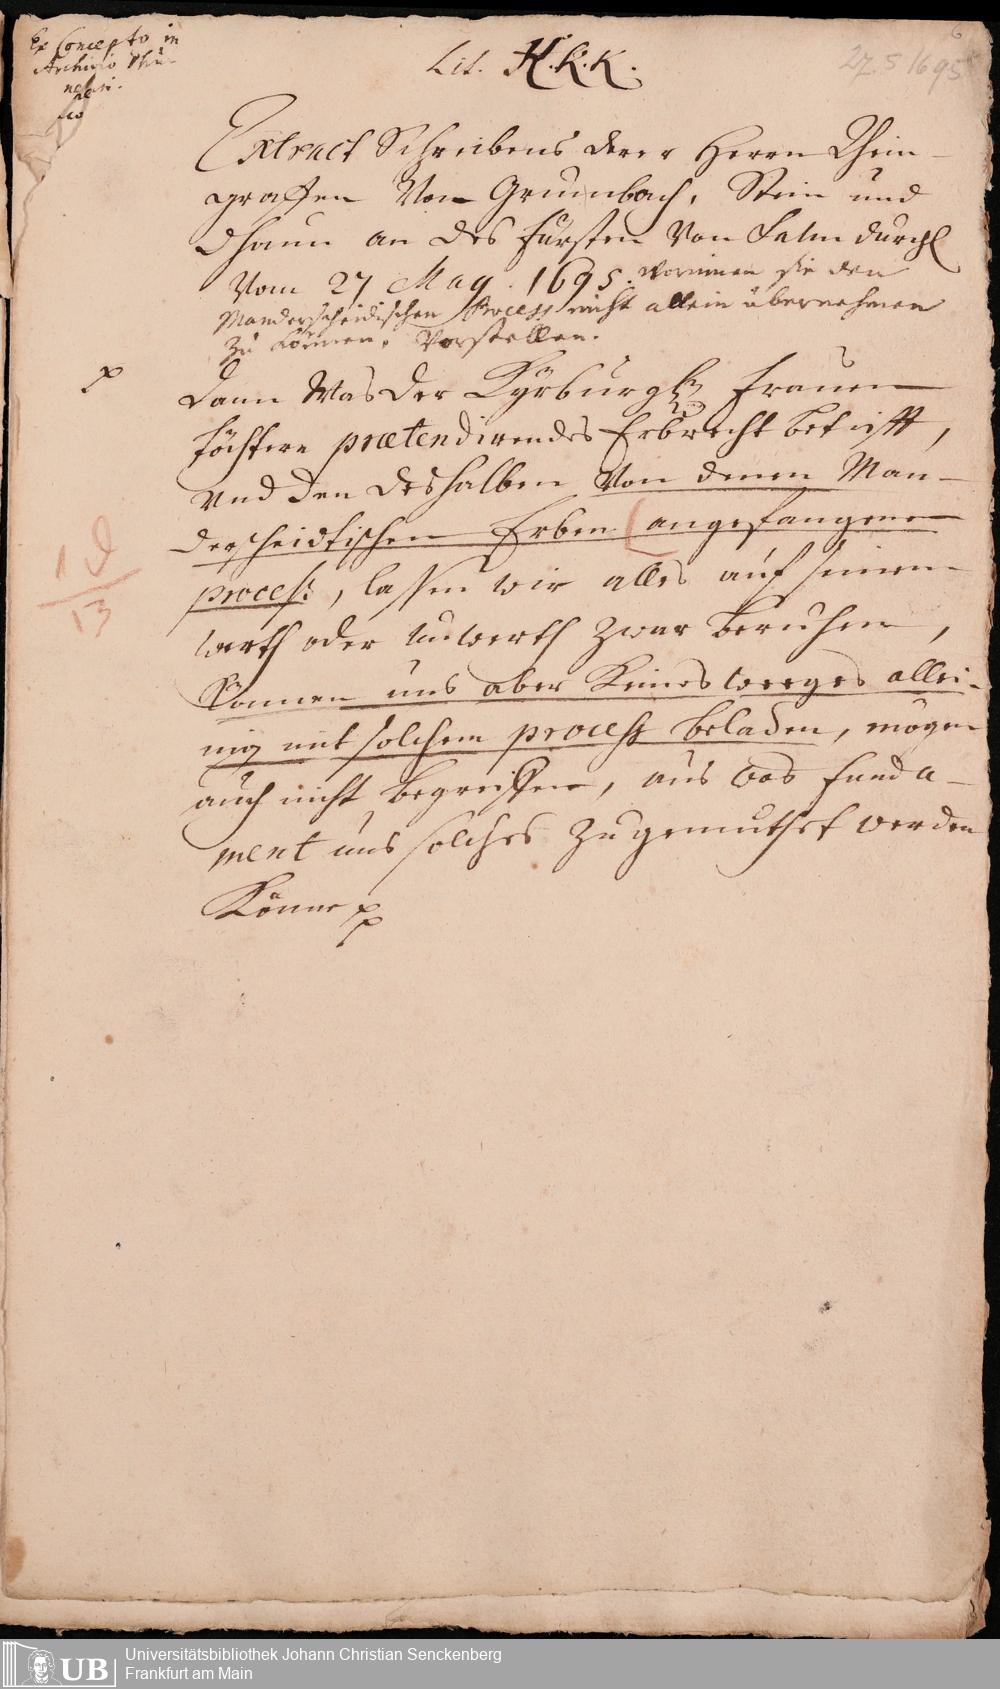 Ex Concepto in
Archivio Rhu-
27.5 1695
6
Lit. K.K.K.
Extract Schreibens derer Herrn Rhein-
graffen Von Grumbach, Stein und
Dhaun an des Fürsten Von Salm Durchl
Vom 27 May. 1695. worinnen sie den
Manderscheidischen Process nicht allein übernehmen
zu können, Vorstellen.
p
Dann Was der Kyrburg. Frauen
Töchtern prætendirendes Erbrecht betrifft,
Vnd den deshalben Von denen Man-
derscheidtischen Erben angefangenen
process, lassen wir alles auf seinem
werth oder Unwerth zwar beruhen,
Können uns aber Keines weeges allei-
nig mit solchem process beladen, mögen
auch nicht begreiffen, aus was funda-
ment uns solches zugemuthet werden
Könne pp
1 d
13
UB
Universitätsbibliothek Johann Christian Senckenberg
Frankfurt am Main